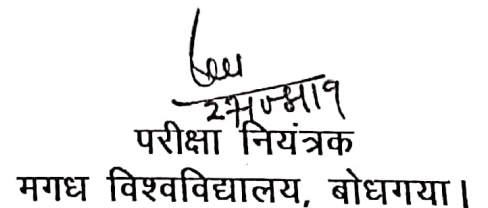 परीक्षा नियंत्रक
मगध विश्वविद्यालय, बोधगया।